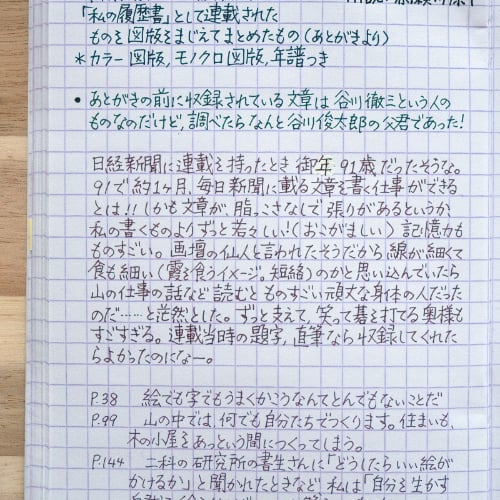 「私の履歴書」として連載された
ものを図版をまじえてまとめたもの(あとがきより)
*カラー図版,モノクロ図版,年譜つき
• あとがきの前に収録されている文章は谷川徹三という人の
ものなのだけど,調べたらなんと谷川俊太郎の父君であった!
日経新聞に連載を持ったとき御年91歳だったそうな。
91で約1ヶ月,毎日新聞に載る文章を書く仕事ができる
とは!!しかも文章が,脂っこさなしで張りがあるというか,
私の書くものよりずっと若々しい!(おこがましい)記憶力も
ものすごい。画壇の仙人と言われたそうだから線が細くて
食も細い(霞を食うイメージ。短絡)のかと思い込んでいたら
山の仕事の話など読むとものすごい頑丈な身体の人だった
のだ……と茫然とした。ずっと支えて,笑って碁を打てる奥様も
すごすぎる。連載当時の題字,直筆なら収録してくれた
らよかったのになー。
P.38 絵でも字でもうまくかこうなんてとんでもないことだ
P.99 山の中では,何でも自分たちでつくります。住まいも,
木の小屋をあっという間につくってしまう。
P.144 二科の研究所の書生さんに「どうしたらいい絵が
かけるか」と聞かれたときなど,私は「自分を生かす